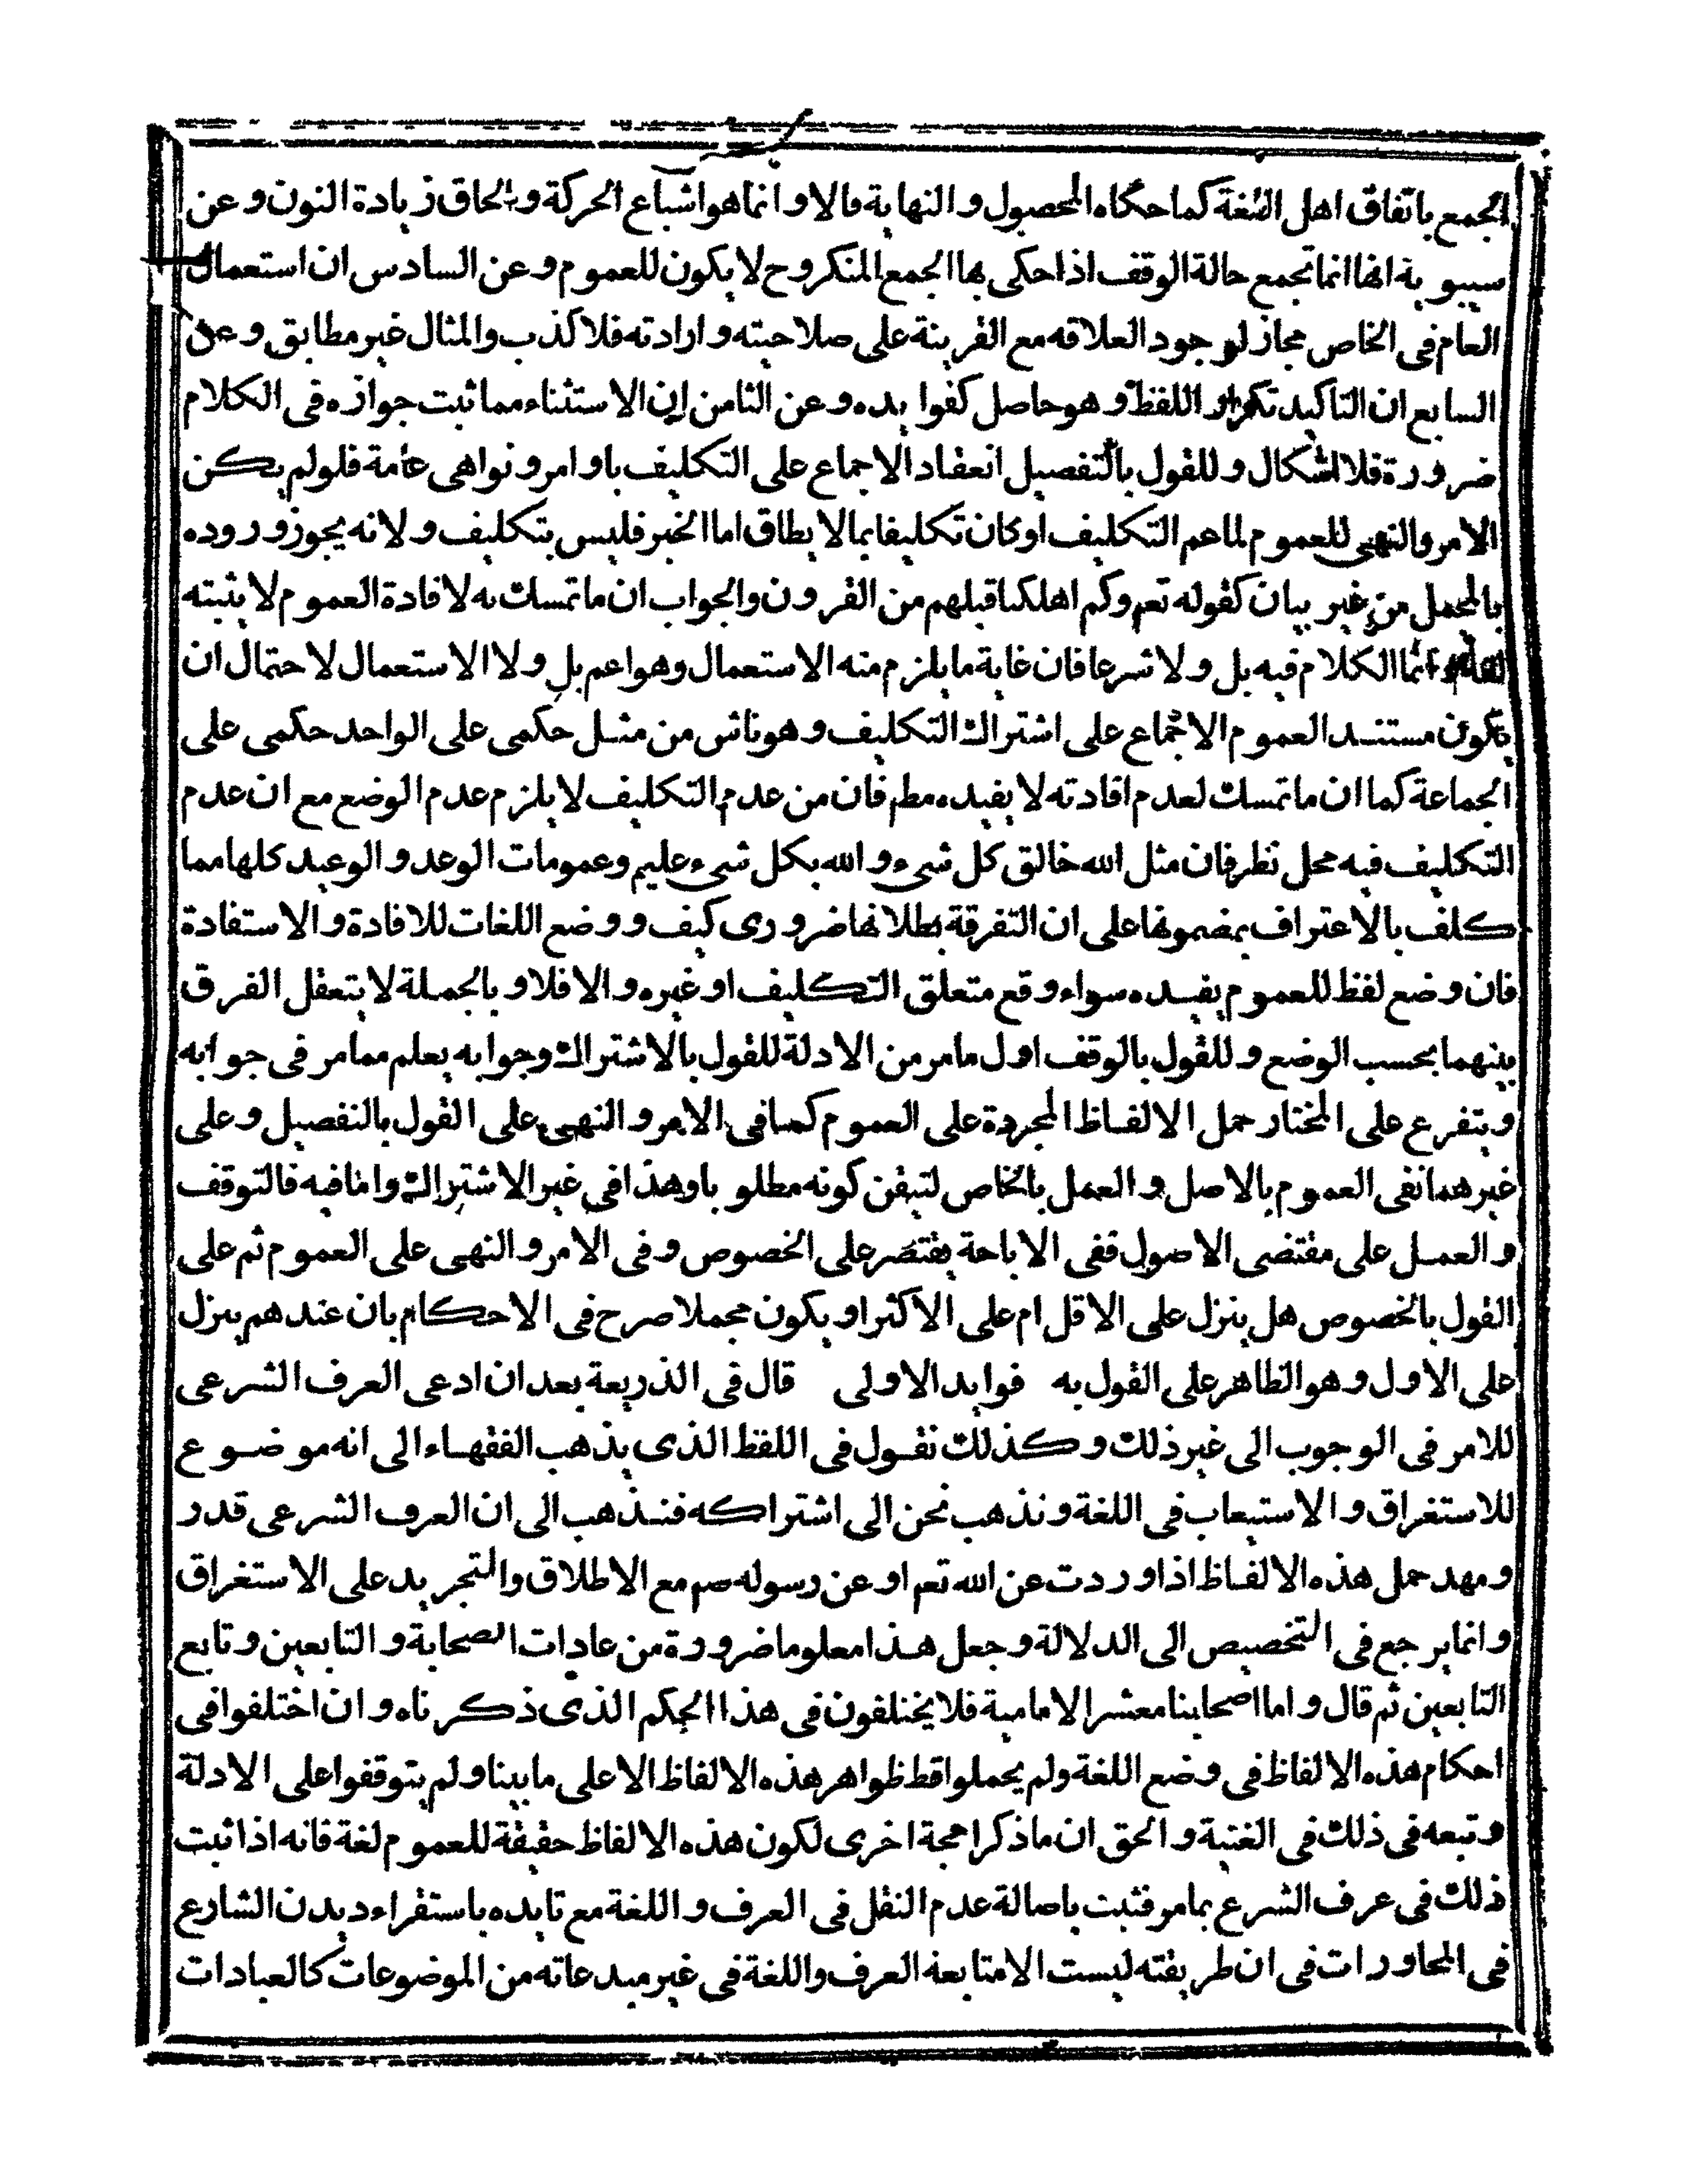 الجمع باتفاق اهل اللغة كما حكاه المحصول و النهاية قالا و انما هو اشباع الحركة و الحاق زيادة النون و عن
سيبويه انها انما تجمع حالة الوقف اذا حكى بها الجمع المنكر و ح لا يكون للعموم و عن السادس ان استعمال
العام فى الخاص مجاز لوجود العلاقه مع القرينة على صلاحيته و ارادته فلا كذب و المثال غير مطابق و عن
السابع ان التاكيد تكرار اللفظ و هو حاصل كفوايده و عن الثامن ان الاستثناء مما ثبت جوازه فى الكلام
ضرورة فلا اشكال و للقول بالتفصيل انعقاد الاجماع على التكليف باوامر و نواهى عامة فلو لم يكن
الامر و النهى للعموم لما عم التكليف او كان تكليفا بما لا يطاق اما الخبر فليس بتكليف و لانه يجوز وروده
بالمجمل من غير بيان كقوله تعم و كم اهلكنا قبلهم من القرون و الجواب ان ما تمسك به لافادة العموم لا يثبته
لغة و انما الكلام فيه بل و لا شرعا فان غاية ما يلزم منه الاستعمال و هو اعم بل و لا الاستعمال لاحتمال ان
يكون مستند العموم الاجماع على اشتراك التكليف و هو ناش من مثل حكمى على الواحد حكمى على
الجماعة كما ان ما تمسك لعدم افادته لا يفيده مطم فان من عدم التكليف لا يلزم عدم الوضع مع ان عدم
التكليف فيه محل نظر فان مثل الله خالق كل شىء و الله بكل شىء عليم و عمومات الوعد و الوعيد كلها مما
كلف بالاعتراف بمضمونها على ان التفرقة بطلانها ضرورى كيف و وضع اللغات للافادة و الاستفادة
فان وضع لفظ للعموم يفيده سواء وقع متعلق التكليف او غيره و الا فلا و بالجملة لا يتعقل الفرق
بينهما بحسب الوضع و للقول بالوقف اول ما مر من الادلة للقول بالاشتراك و جوابه يعلم مما مر فى جوابه
و يتفرع على المختار حمل الالفاظ المجردة على العموم كما فى الامر و النهى على القول بالتفصيل و على
غيرهما نفى العموم بالاصل و العمل بالخاص لتيقن كونه مطلوبا و هذا فى غير الاشتراك و اما فيه فالتوقف
و العمل على مقتضى الاصول ففى الاباحة يقتصر على الخصوص و فى الامر و النهى على العموم ثم على
القول بالخصوص هل ينزل على الاقل ام على الاكثر او يكون مجملا صرح فى الاحكام بان عندهم ينزل
على الاول و هو الظاهر على القول به فوايد الاولى قال فى الذريعة بعد ان ادعى العرف الشرعى
للامر فى الوجوب الى غير ذلك و كذلك نقول فى اللفظ الذى يذهب الفقهاء الى انه موضوع
للاستغراق و الاستيعاب فى اللغة و نذهب نحن الى اشتراكه فنذهب الى ان العرف الشرعى قدر
و مهد حمل هذه الالفاظ اذا وردت عن الله تعم او عن رسوله صم مع الاطلاق و التجريد على الاستغراق
و انما يرجع فى التخصيص الى الدلالة و جعل هذا معلوما ضرورة من عادات الصحابة و التابعين و تابع
التابعين ثم قال و اما اصحابنا معشر الامامية فلا يختلفون فى هذا الحكم الذى ذكرناه و ان اختلفوا فى
احكام هذه الالفاظ فى وضع اللغة و لم يحملوا قط ظواهر هذه الالفاظ الا على ما بينا و لم يتوقفوا على الادلة
و تبعه فى ذلك فى الغنية و الحق ان ما ذكرا حجة اخرى لكون هذه الالفاظ حقيقة للعموم لغة فانه اذا ثبت
ذلك فى عرف الشرع بما مر فثبت باصالة عدم النقل فى العرف و اللغة مع تايده باستقراء ديدن الشارع
فى المحاورات فى ان طريقته ليست الا متابعة العرف و اللغة فى غير مبدعاته من الموضوعات كالعبادات